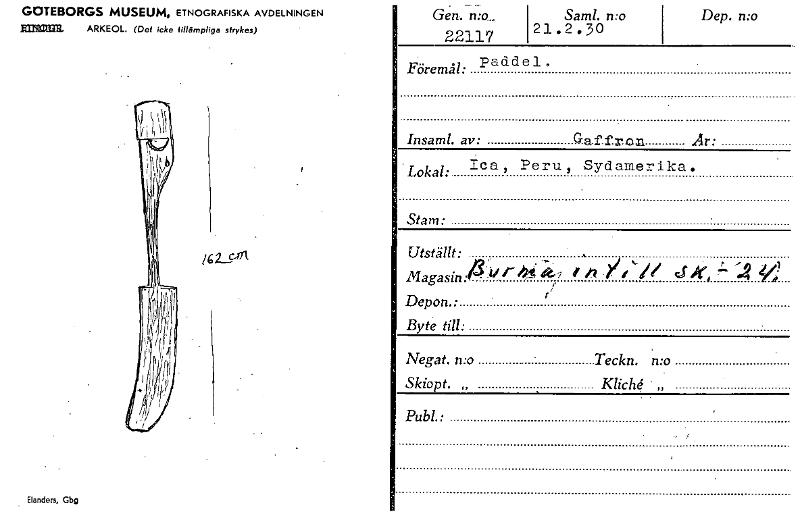 GÖTEBORGS MUSEUM, ETNOGRAFISKA AVDELNINGEN
ARKEOL. (Det icke tillämpliga strykes)
162 cm
Elanders, Gbg
Gen. n:o Saml. n:o Dep. n:o
22117 21.2.30
Föremål: Paddel.
Insaml. av: Gaffron År:
Lokal: Ica, Peru, Sydamerika.
Stam:
Utställt:
Magasin: Burma, intill sk.-24.
Depon.:
Byte till:
Negat. n:o Teckn. n:o
Skiopt. „ Kliché „
Publ.: